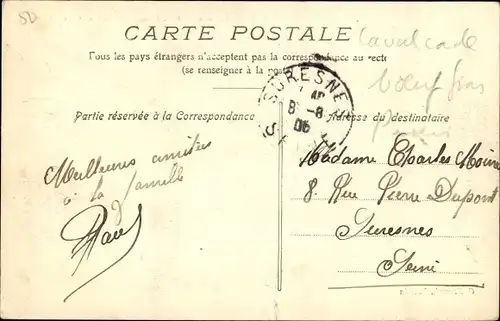 50
CARTE POSTALE
Tous les pays étrangers n'acceptent pas la correspondance au recto
(se renseigner à la poste
Cavalcade
bœuf gras
SURESNES
8 -8
06
Partie réservée à la Correspondance
Adresse du destinataire
Meilleures amitiés
à la famille
Madame Charles
8. Rue Pierre Dupont
Suresnes
Seine